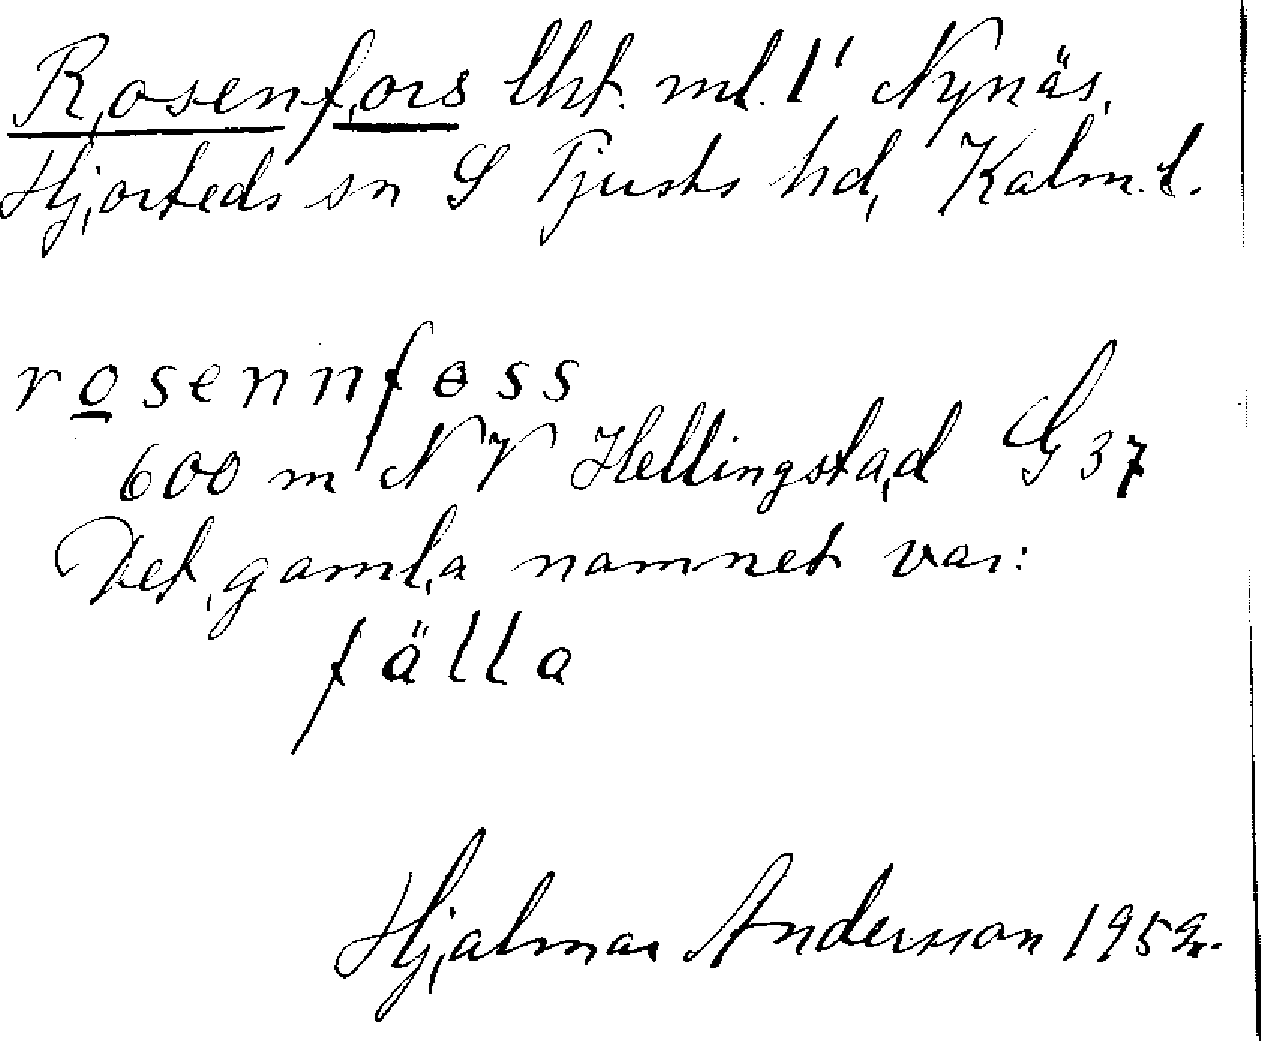 Rosenfors lht. ml. 1' Nynäs,
Hjorteds sn S Tjusts hd, Kalm. l.
rosennfoss
600 m NV Hellingstad G 37
Det gamla namnet var:
fälla
Hjalmar Andersson 1952.